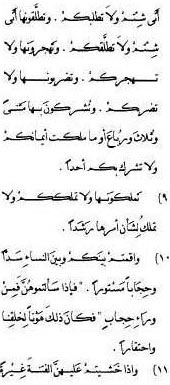 أنى شئتم ولا تطلبكم. وتطلقونها أنى
شئتم ولا تطلّقكم. وتهجرونها ولا
تهجركم. وتضربونها ولا
تضربكم. وتشركون بها مثنى
وثلاث ورباع أو ما ملكت أيمانكم
ولا تشرك بكم أحداً.
٩) تملكونها ولا تملككم ولا
تملك لشأن أمرها رشداً.
١٠) واقمتم بينكم وبين النساء سداً
وحجاباً مستوراً. "فإذا سألتموهن فمن
وراء حجاب" فكان ذلك موتاً لخلقنا
واحتقاراً.
١١) واذا خشيتم عليهن الفتنة غيرة